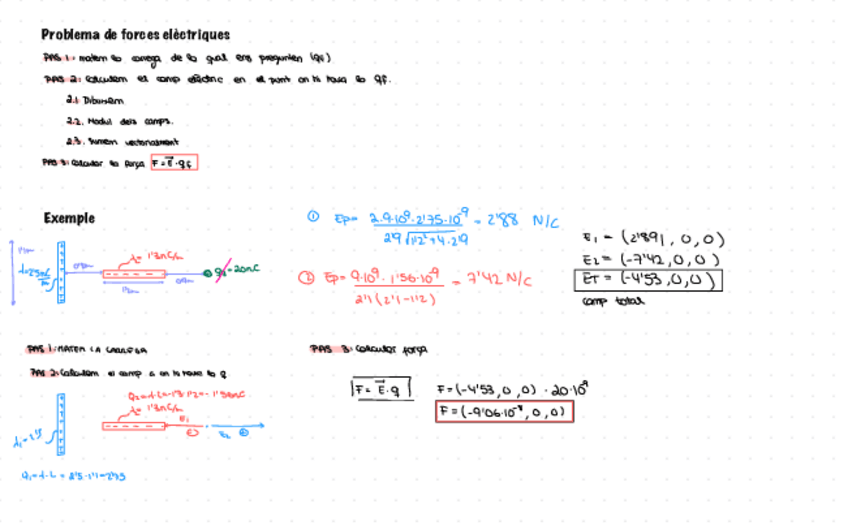 Problema de forces elèctriques
PAS 1: matem la carrega de la qual ens pregunten (qf)
PAS 2: Calculem el camp elèctric en el punt on hi havia la qf.
2.1 Dibuixem
2.2. Modul dels camps.
2.3. Sumem vectorialment
PAS 3: Calcular la força F = E⃗·qf
Exemple
λ= 1'3nC/m
= 20nC
① Ep= 2·9·10⁹·2'75·10⁻⁹ / 2'9 √1'1²+4·2'9 = 2'88 N/C
② Ep= 9·10⁹·1'56·10⁻⁹ / 2'1 (2'1-1'2) = 7'42 N/C
E₁ = (2'891, 0, 0)
E₂ = (-7'42, 0, 0)
ET = (-4'53, 0, 0)
camp total
PAS 1: MATEM LA CARREGA
PAS 2: Calculem el camp a on hi havia la q
λ= 1'3nC/m
E₁
E₂
Q₁=λ·L = 2'5·1'1=2'75
PAS 3: Calcular força
F = E⃗·q
F=(-4'53, 0, 0) · 20·10⁻⁹
F=(-9'06·10⁻⁸, 0, 0)